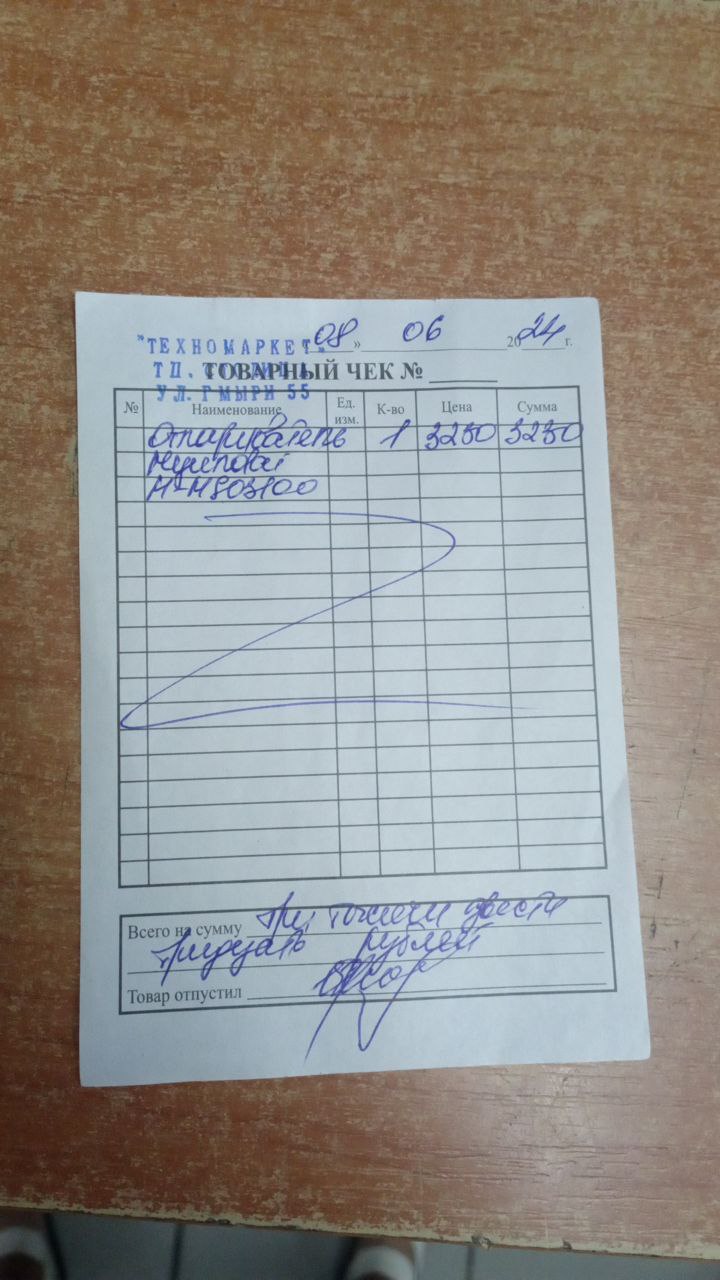 "ТЕХНОМАРКЕТ" 08 » 06 20 24 г.
ТЦ. СТОЛИЦА
ТОВАРНЫЙ ЧЕК №
УЛ. ГМЫРИ 55
№ Наименование Ед. изм. К-во Цена Сумма
Отпариватель 1 3230 3230
Hyundai
H-HS03100
Всего на сумму три тысячи двести
тридцать рублей
Товар отпустил